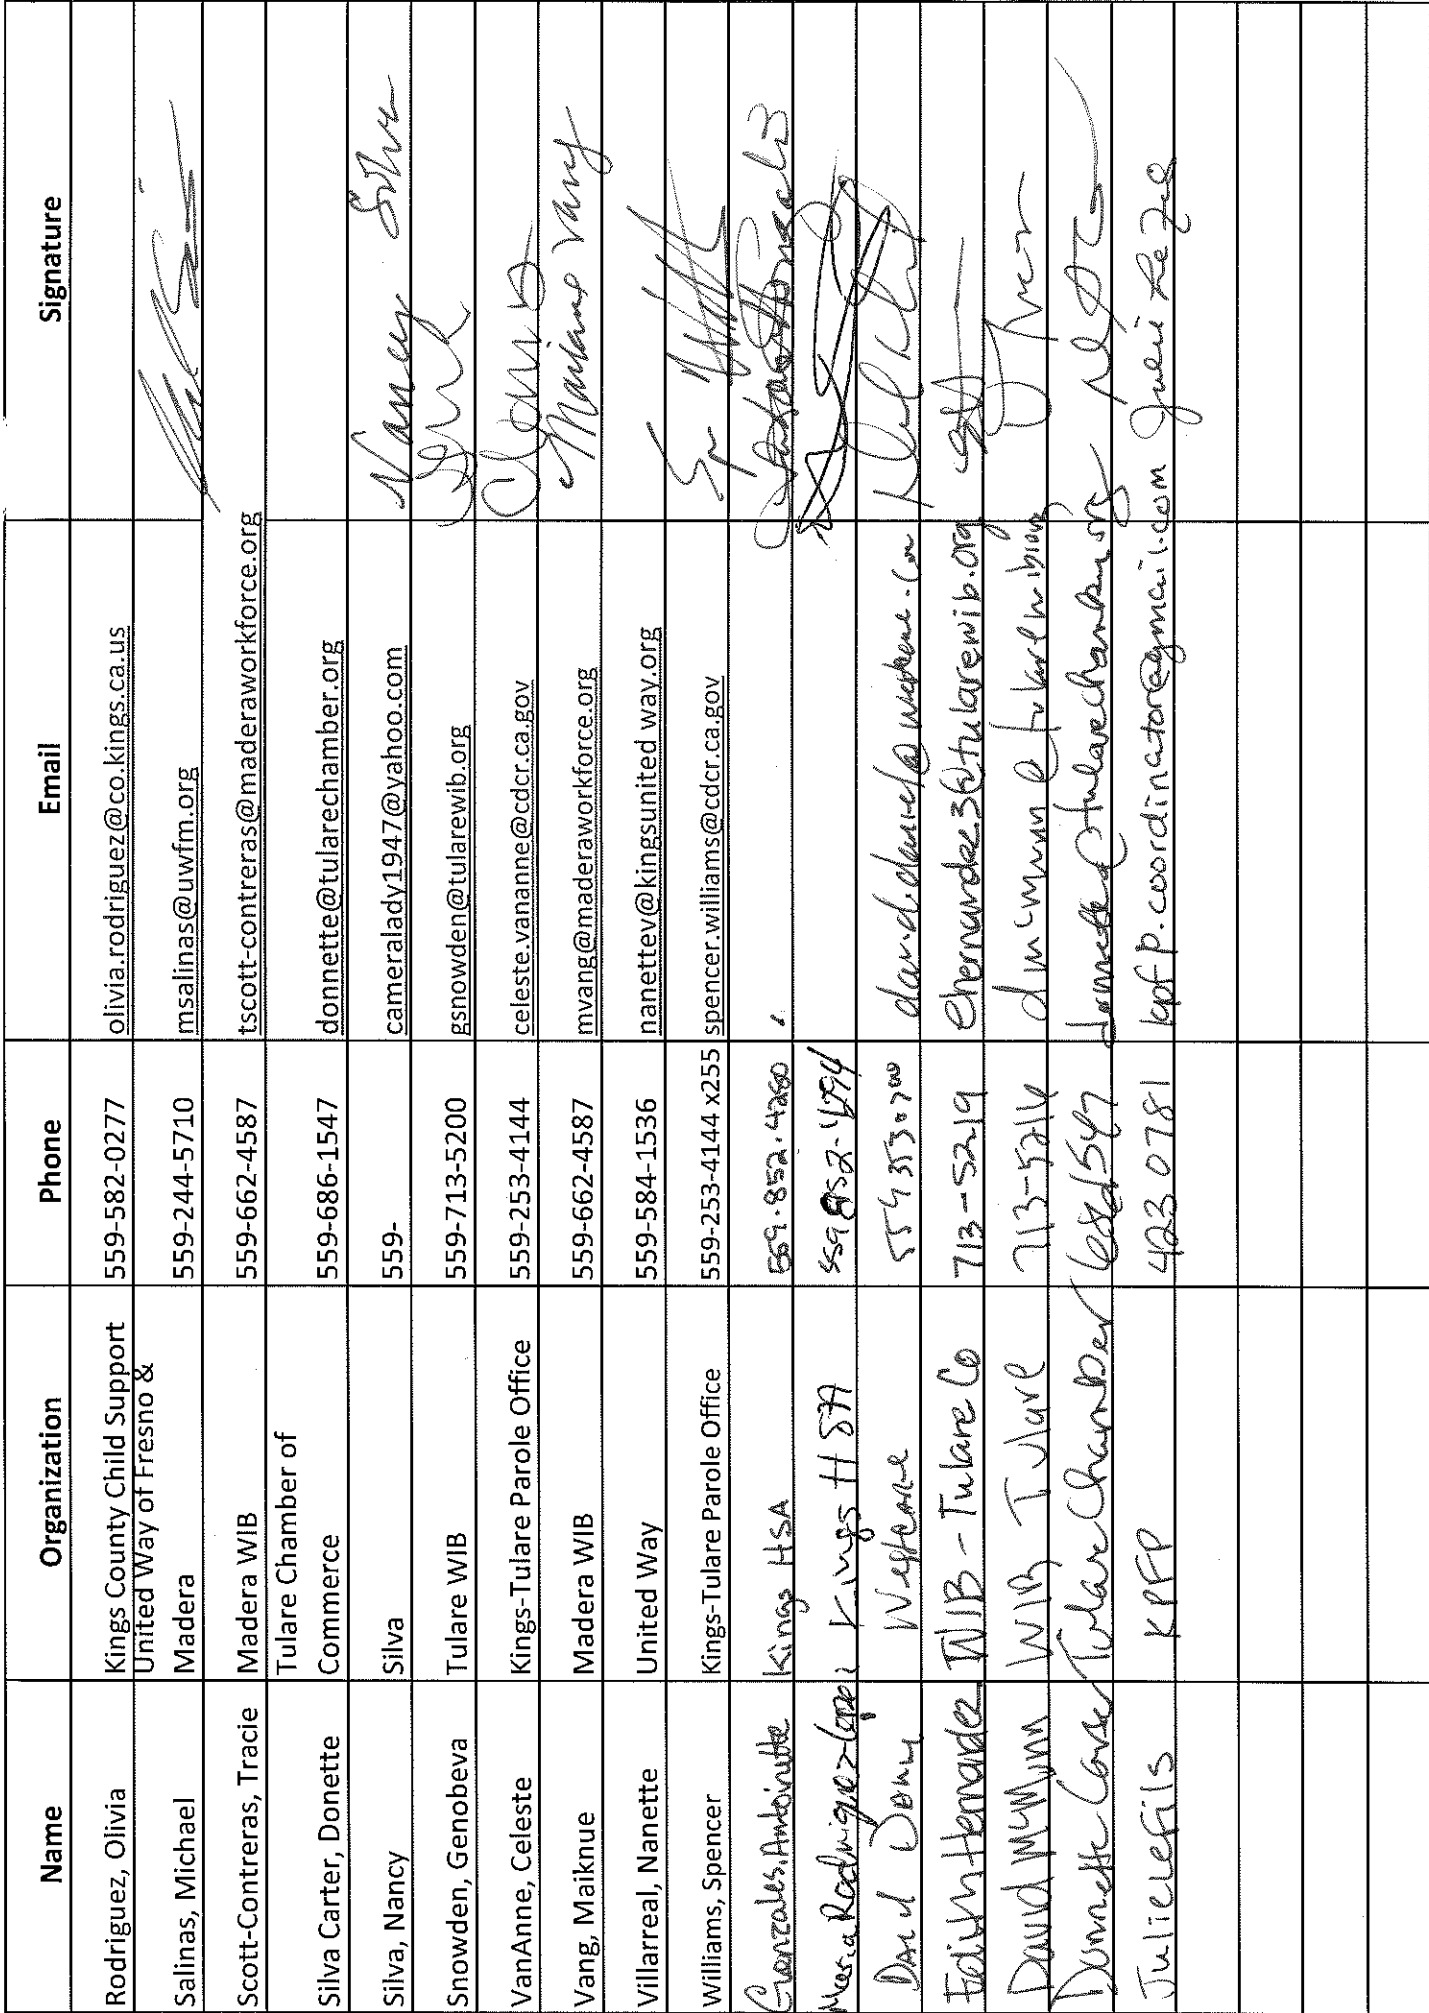 Name Organization Phone Email Signature
Rodriguez, Olivia Kings County Child Support 559-582-0277 olivia.rodriguez@co.kings.ca.us
United Way of Fresno &
Salinas, Michael Madera 559-244-5710 msalinas@uwfm.org
Scott-Contreras, Tracie Madera WIB 559-662-4587 tscott-contreras@maderaworkforce.org
Tulare Chamber of
Silva Carter, Donette Commerce 559-686-1547 donnette@tularechamber.org
Silva, Nancy Silva 559- cameralady1947@yahoo.com Nancy Silva
Snowden, Genobeva Tulare WIB 559-713-5200 gsnowden@tularewib.org
VanAnne, Celeste Kings-Tulare Parole Office 559-253-4144 celeste.vananne@cdcr.ca.gov
Vang, Maiknue Madera WIB 559-662-4587 mvang@maderaworkforce.org Vang
Villarreal, Nanette United Way 559-584-1536 nanettev@kingsunited way.org
Williams, Spencer Kings-Tulare Parole Office 559-253-4144 x255 spencer.williams@cdcr.ca.gov
Gonzales, Antoinette Kings HSA 559.852.4260
Maria Rodriguez-Lopez Kings HSA 559 852-4294
Westcare 559 353 0700
Edith Hernandez WIB - Tulare Co 713-5219 ehernandez3@tularewib.org
David McMunn WIB Tulare 713-5214
Donnette Carter Tulare Chamber 6861547 donnette@tularechamber.org
Julie LeFils KPFP 423 0781 kpfp.coordinator@gmail.com Julie